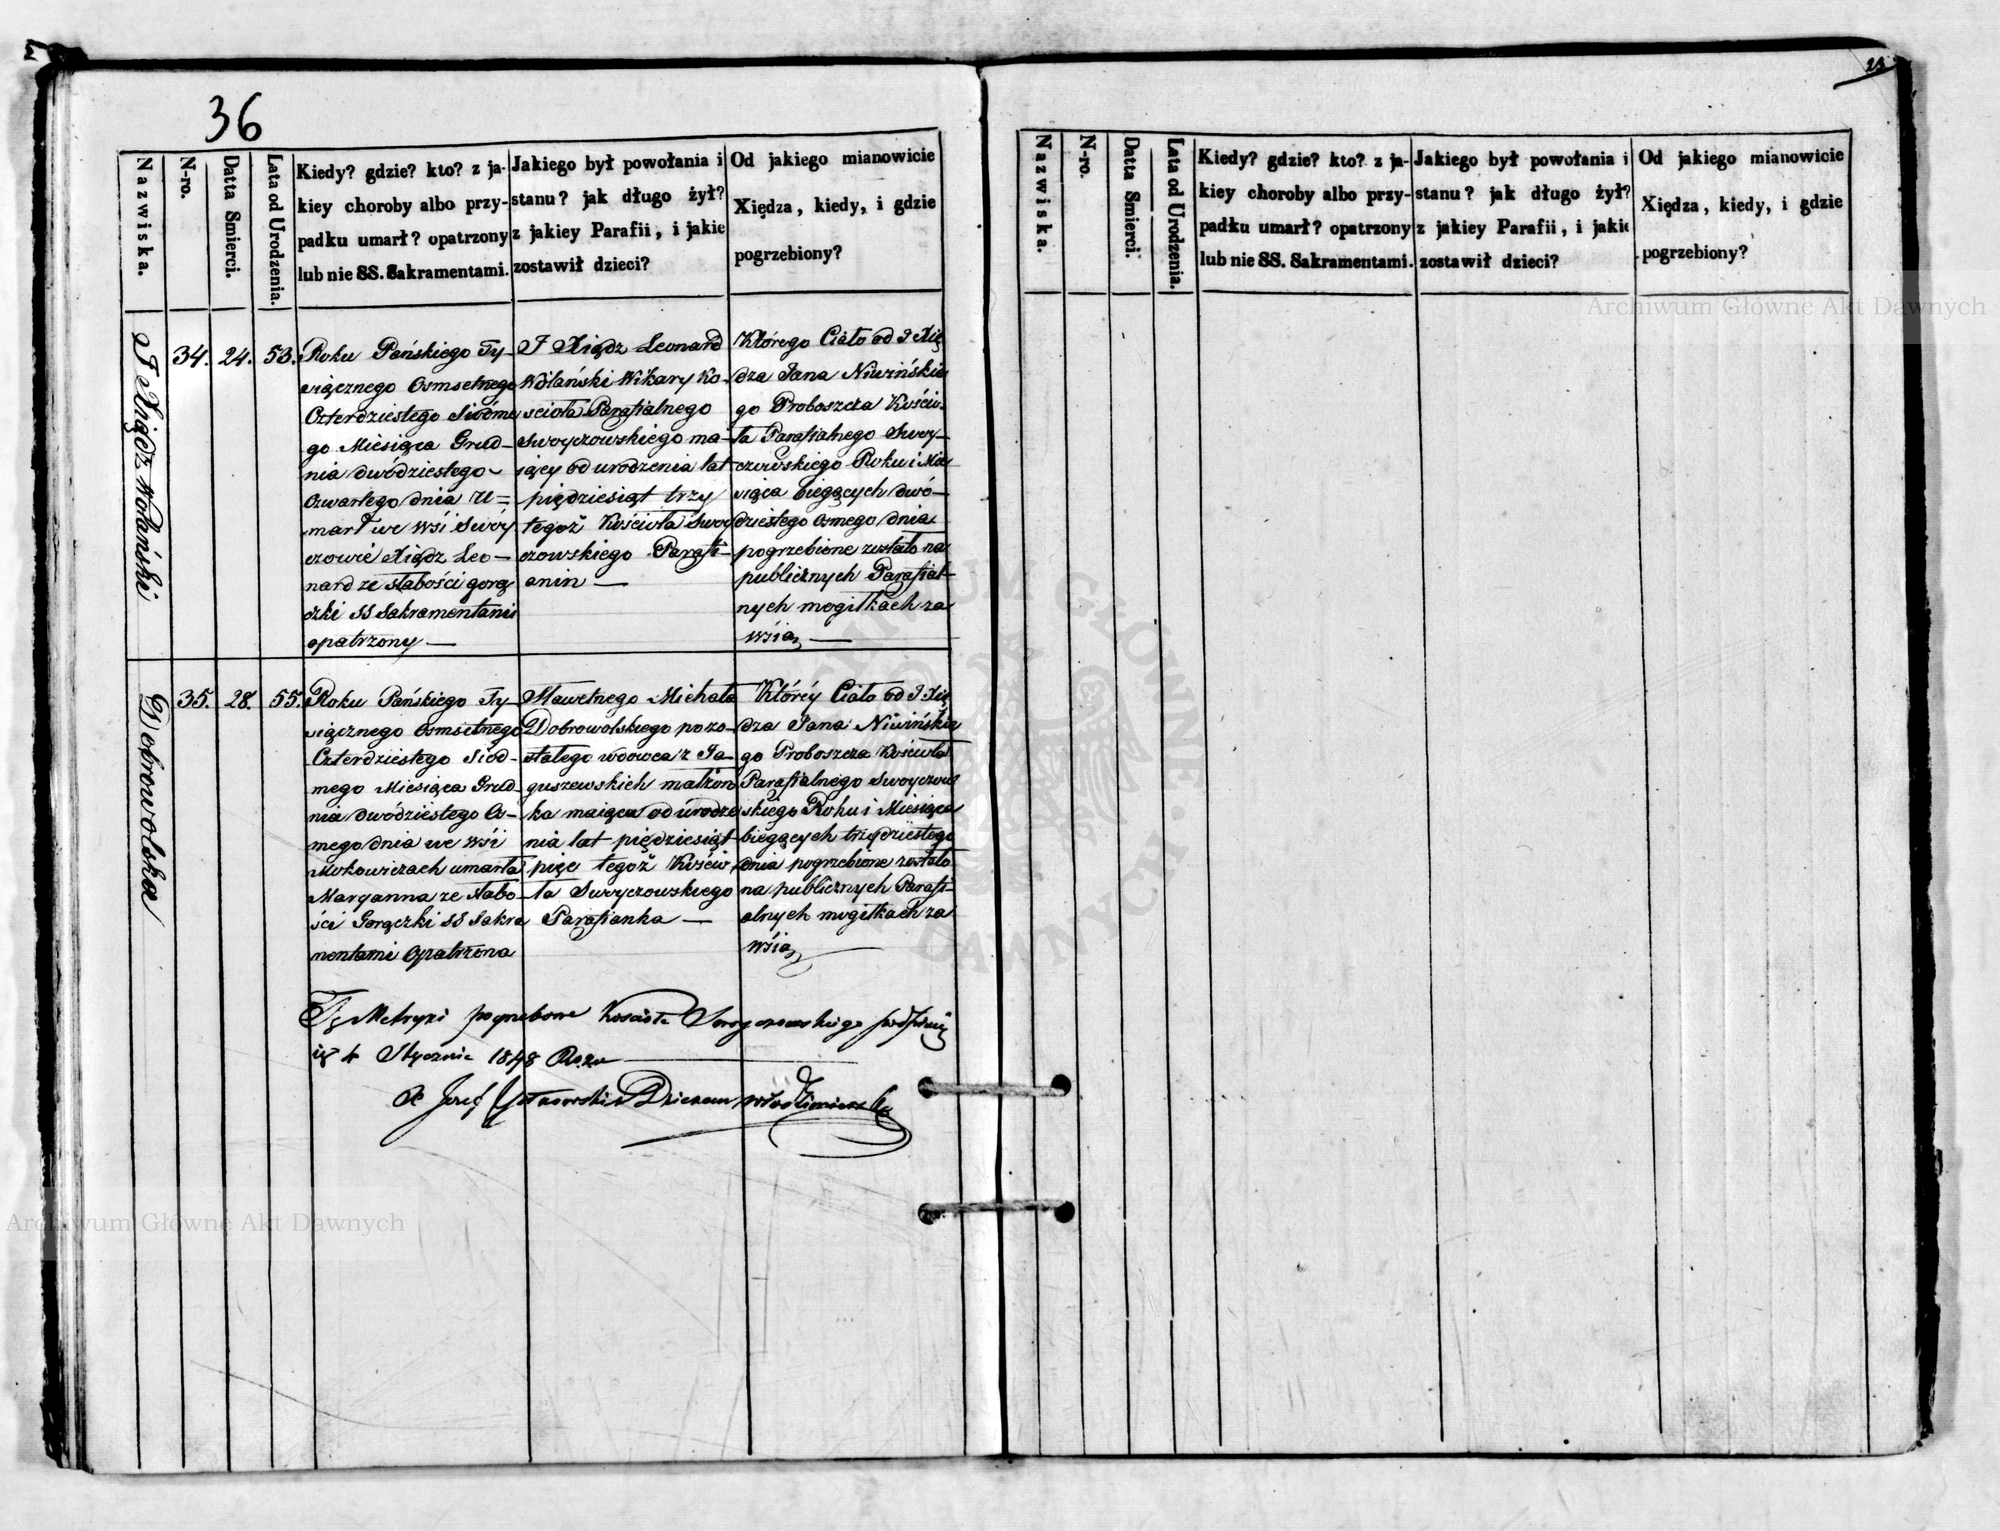 36
23
Nazwiska.
N-ro.
Datta Smierci.
Lata od Urodzenia.
Kiedy? gdzie? kto? z ja-
kiey choroby albo przy-
padku umarł? opatrzony
lub nie SS. Sakramentami.
Jakiego był powołania i
stanu? jak długo żył?
z jakiey Parafii, i jakie
zostawił dzieci?
Od jakiego mianowicie
Xiędza, kiedy, i gdzie
pogrzebiony?
J Xiądz Wolański
34.
24.
53.
Roku Pańskiego Ty-
siącznego Osmsetnego
Czterdziestego Siódme
go Miesiąca Grud-
nia dwódziestego
Czwartego dnia u=
marł we wsi Swóy
czowie Xiądz Leo-
nard ze słabości gorą
czki SS Sakramentami
opatrzony —
J Xiądz Leonard
Wolański Wikary Ko-
scioła Parafialnego
Swoyczowskiego ma-
iący od urodzenia lat
pięćdziesiąt trzy
tegoż Kościoła Swoy
czowskiego Parafi-
anin —
Którego Ciało od J Xię
dza Jana Niwińskie
go Proboszcza Kościo-
ła Parafialnego Swoy-
czowskiego Roku i Mie
siąca biegących dwó-
dziestego osmego dnia
pogrzebione zostało na
publicznych Parafial-
nych mogiłkach za
wsią —
Dobrowolska
35.
28.
55.
Roku Pańskiego Ty-
siącznego Osmsetnego
Czterdziestego Siód-
mego Miesiąca Grud-
nia dwódziestego Os-
mego dnia we wsi
Mokowiczach umarła
Maryanna ze słabo-
ści Gorączki SS Sakra
mentami Opatrzona
Sławetnego Michała
Dobrowolskiego pozo-
stałego wdowca z Ja-
guszewskich małżon
ka maiąca od urodze
nia lat pięćdziesiąt
pięc tegoż Kościo-
ła Swoyczowskiego
Parafianka —
Któréy Ciało od J Xię
dza Jana Niwińskie
go Proboszcza Kościoła
Parafialnego Swoyczow
skiego Roku i Miesiąca
biegących trzydziestego
dnia pogrzebione zostało
na publicznych Parafi-
alnych mogiłkach za
wsią
Tę Metryki pogrzebowe Kościoła Swoyczowskiego
4 Stycznia 1848 Roku
X Józef Dziekan Włodzimierski
Nazwiska.
N-ro.
Datta Smierci.
Lata od Urodzenia.
Kiedy? gdzie? kto? z ja-
kiey choroby albo przy-
padku umarł? opatrzony
lub nie SS. Sakramentami.
Jakiego był powołania i
stanu? jak długo żył?
z jakiey Parafii, i jakie
zostawił dzieci?
Od jakiego mianowicie
Xiędza, kiedy, i gdzie
pogrzebiony?
Archiwum Główne Akt Dawnych
Archiwum Główne Akt Dawnych